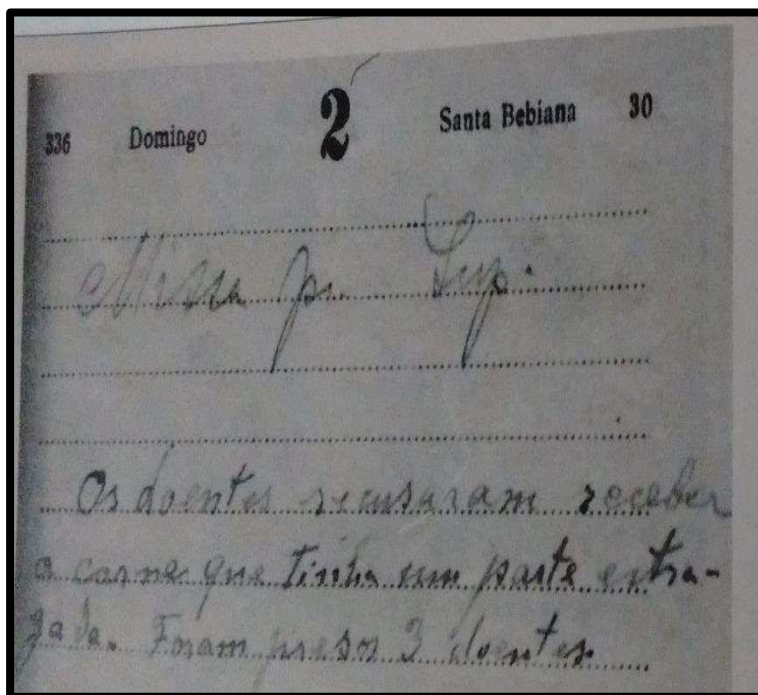 336 Domingo 2 Santa Bebiana 30
Missa pr. Sup.
Os doentes recusaram receber
a carne que tinha um parte estra-
gada. Foram presos 3 doentes.